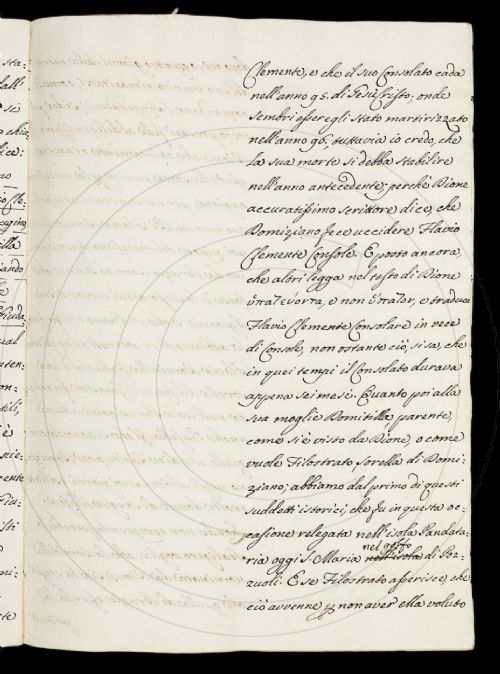 Clemente, e che il suo Consolato cada
nell'anno 95. di Gesù Cristo, onde
sembri essere gli stato martirizzato
nell'anno 96, tuttavia io credo, che
la sua morte si debba stabilire
nell'anno antecedente; perchè Dione
accuratissimo scrittore dice, che
Domiziano fece uccidere Flavio
Clemente Console. E posto ancora,
che altri legga nel testo di Dione
e non e traduca
Flavio Clemente Consolare in vece
di Console, non ostante ciò, si sa, che
in quei tempi il Consolato durava
appena sei mesi. Quanto poi alla
sua moglie Domitilla, parente,
come si è visto da Dione, o come
vuole Filostrato sorella di Domi:
ziano; abbiamo dal primo di questi
suddetti istorici, che fu in questa oc:
casione relegata nell'isola Pandata:
nel golfo
ria oggi S. Maria nell'isola di Poz:
zuoli: E se Filostrato asserisce, che
ciò avvenne p non aver ella voluto